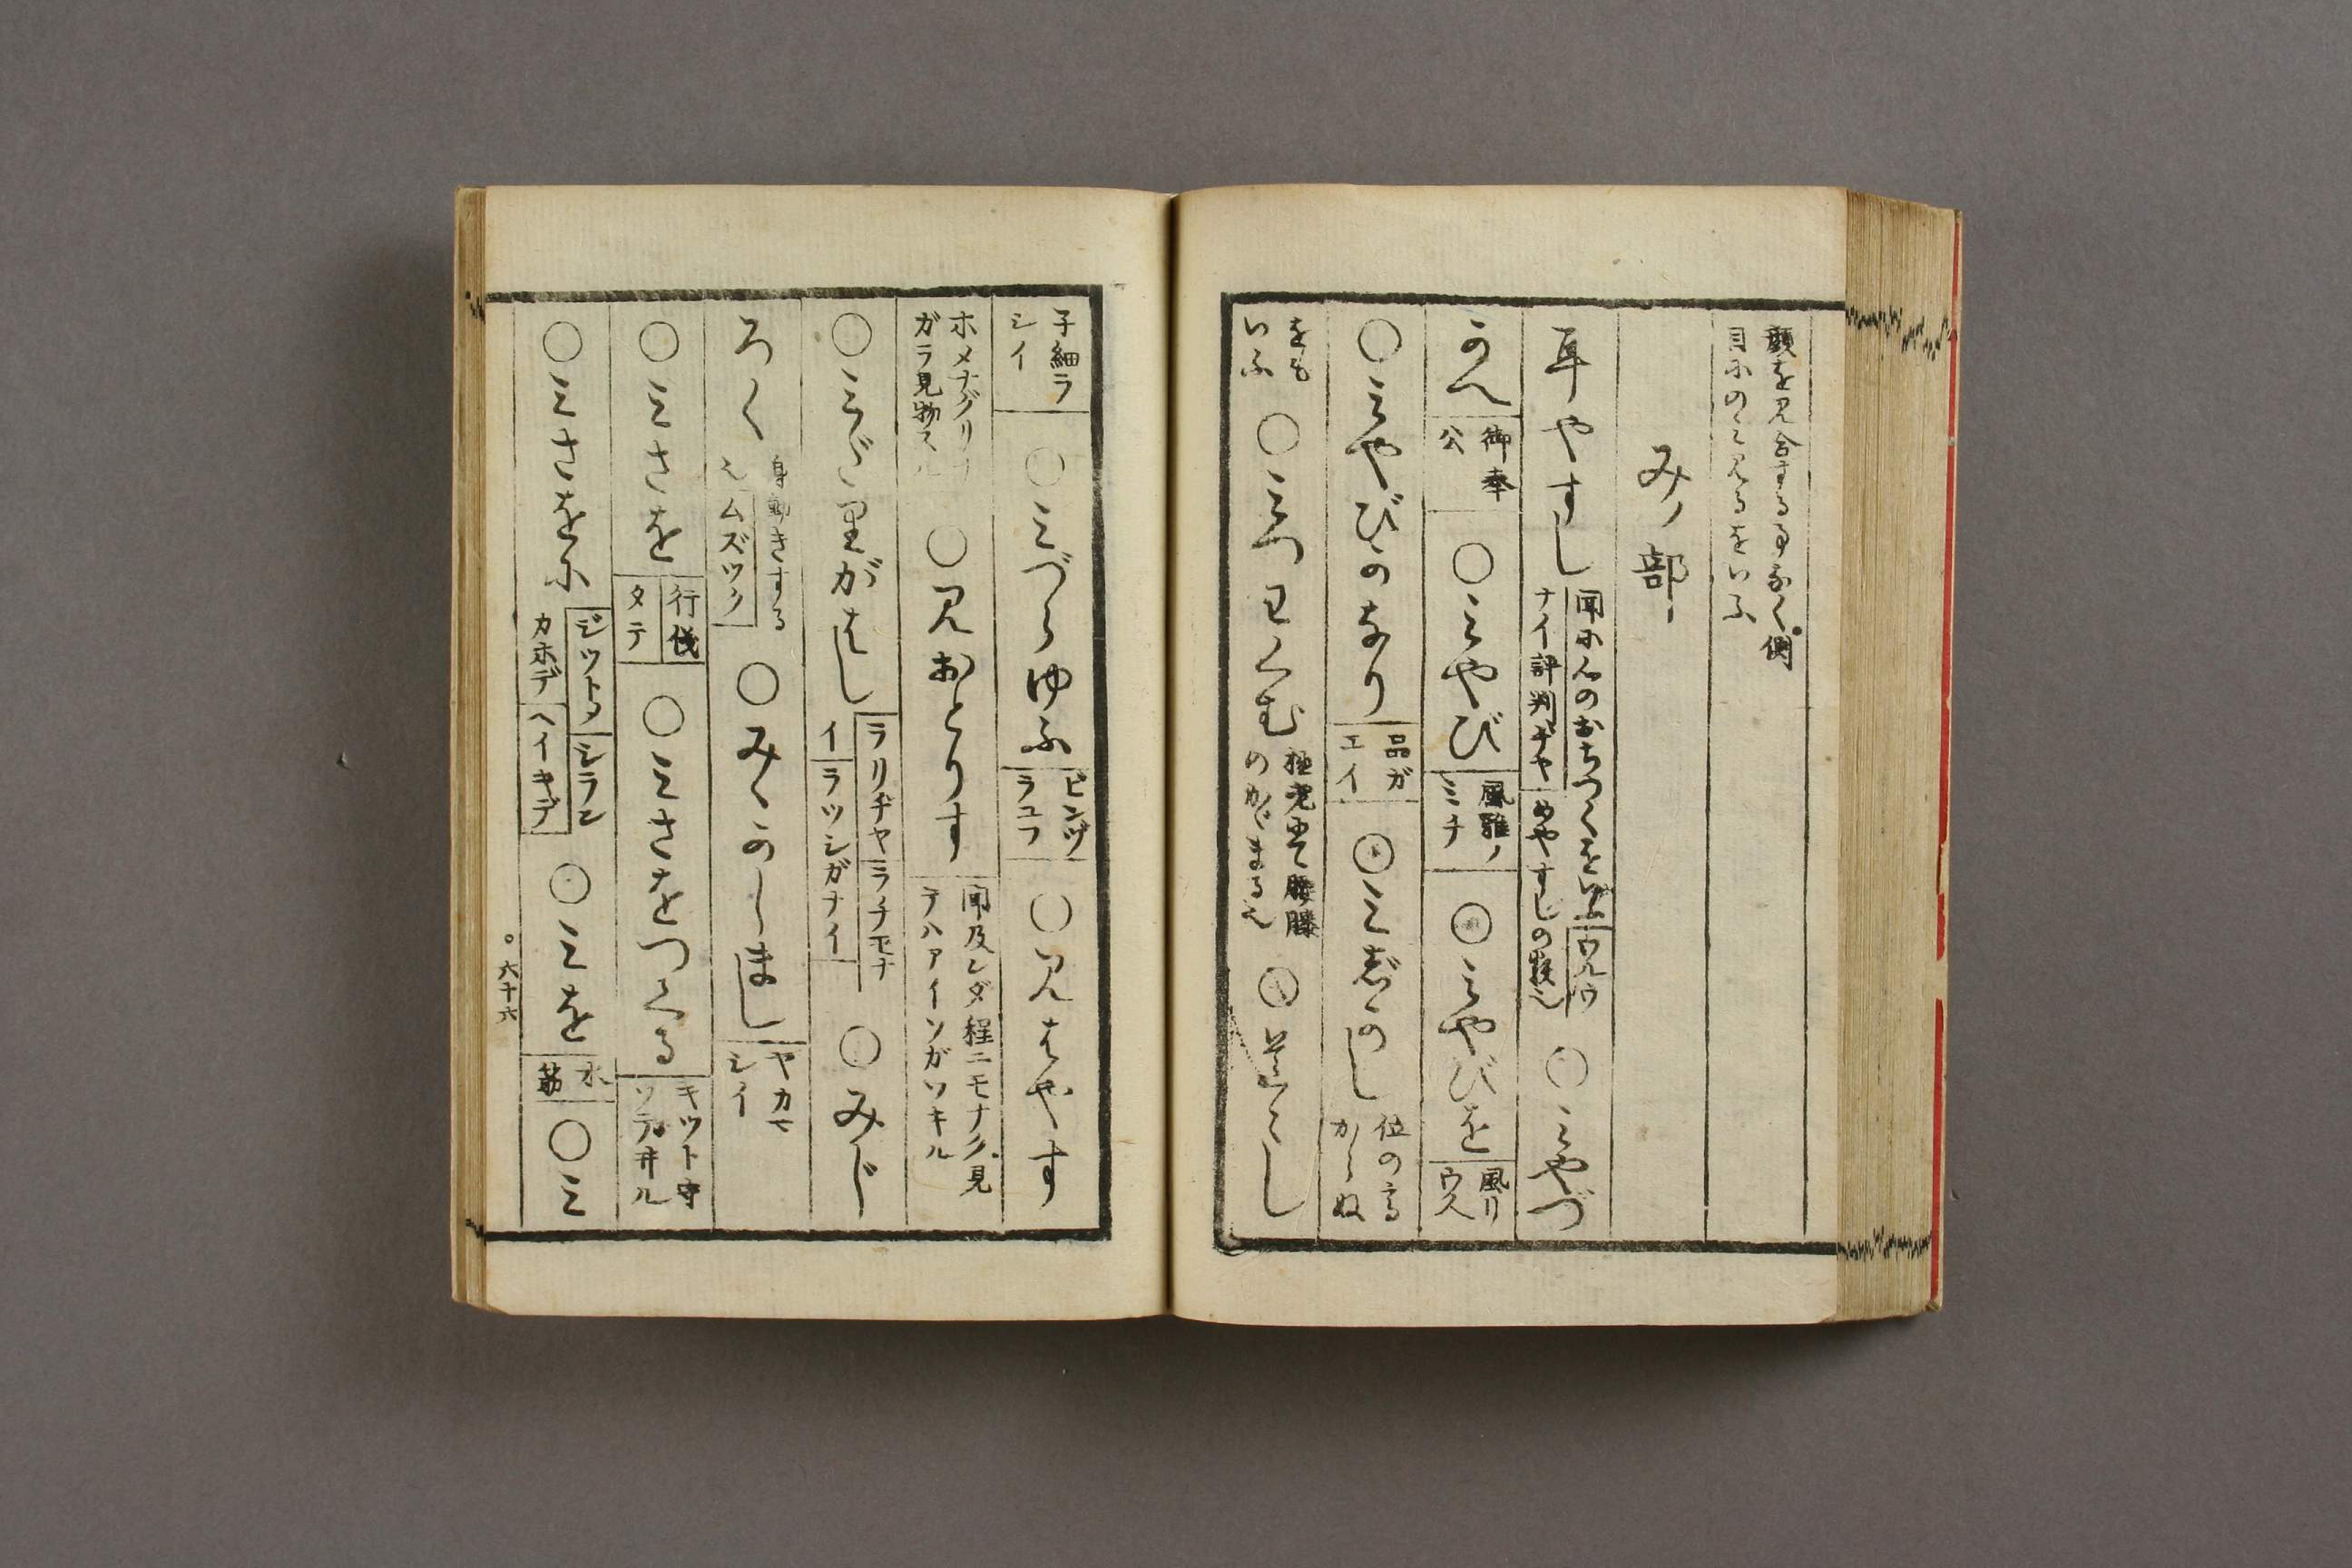 顔を見合する事なく側
目にのみ見るをいふ
みノ部
耳やすし 聞に心のおちつくをいふ ウルウ ナイ評判ヂヤ めやすしの類也 ○みやづ
かへ 御奉公 ○みやび 風雅ノミチ ○みやびを 風リウ人
○みやびのなり 品ガエイ ○みじかし 位の高からぬ
をもいふ ○みつわくむ 極老にて腰膝のかゞまる也 ○
子細ラシイ ○みづらゆふ ビンヅラユフ ○見はやす
ホメナグリナガラ見物スル ○見おとりす 聞及ンダ程ニモナク見テハアイソガツキル
○みだりがはし ラリヂヤ ラチモナイ ラツシガナイ ○みじ
ろく 身動きする也 ムズツク ○みゝかしまし ヤカマシイ
○みさを 行儀タテ ○みさをつくる キツト守ツテ井ル
○みさをに ジツトシタ シランカホデ ヘイキデ ○みを 水筋 ○み
○六十六